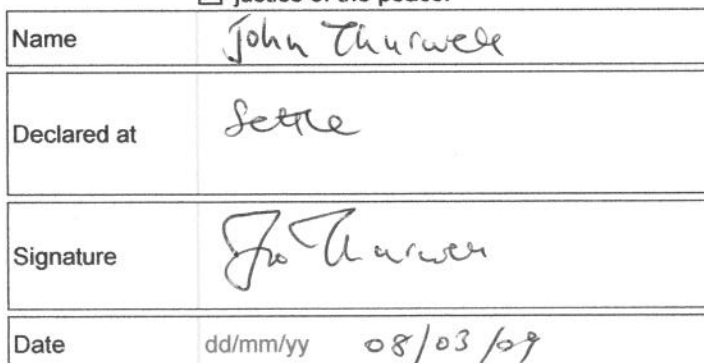 justice of the peace.
Name John Thurwell
Declared at Settle
Signature Jo Thurwell
Date dd/mm/yy 08/03/09